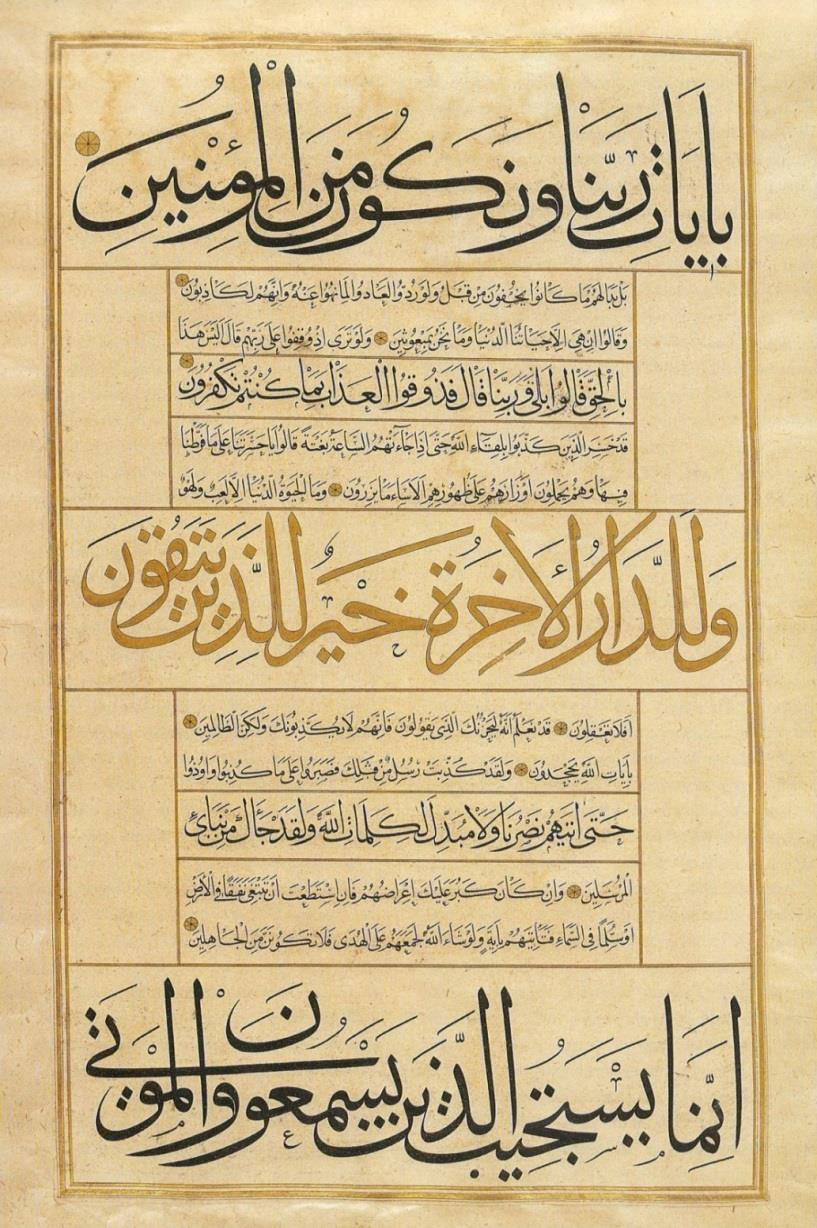 بآيات ربنا ونكون من المؤمنين
بل بدا لهم ما كانوا يخفون من قبل ولو ردوا لعادوا لما نهوا عنه وانهم لكاذبون
وقالوا ان هي الا حياتنا الدنيا وما نحن بمبعوثين ولو ترى اذ وقفوا على ربهم قال اليس هذا
بالحق قالوا بلى وربنا قال فذوقوا العذاب بما كنتم تكفرون
قد خسر الذين كذبوا بلقاء الله حتى اذا جاءتهم الساعة بغتة قالوا يا حسرتنا على ما فرطنا
فيها وهم يحملون اوزارهم على ظهورهم الا ساء ما يزرون وما الحيوة الدنيا الا لعب ولهو
وللدار الآخرة خير للذين يتقون
افلا تعقلون قد نعلم انه ليحزنك الذي يقولون فانهم لا يكذبونك ولكن الظالمين
بآيات الله يجحدون ولقد كذبت رسل من قبلك فصبروا على ما كذبوا واوذوا
حتى اتيهم نصرنا ولا مبدل لكلمات الله ولقد جاءك من نبائ
المرسلين وان كان كبر عليك اعراضهم فان استطعت ان تبتغي نفقا في الارض
او سلما في السماء فتاتيهم بآية ولو شاء الله لجمعهم على الهدى فلا تكونن من الجاهلين
انما يستجيب الذين يسمعون والموتى